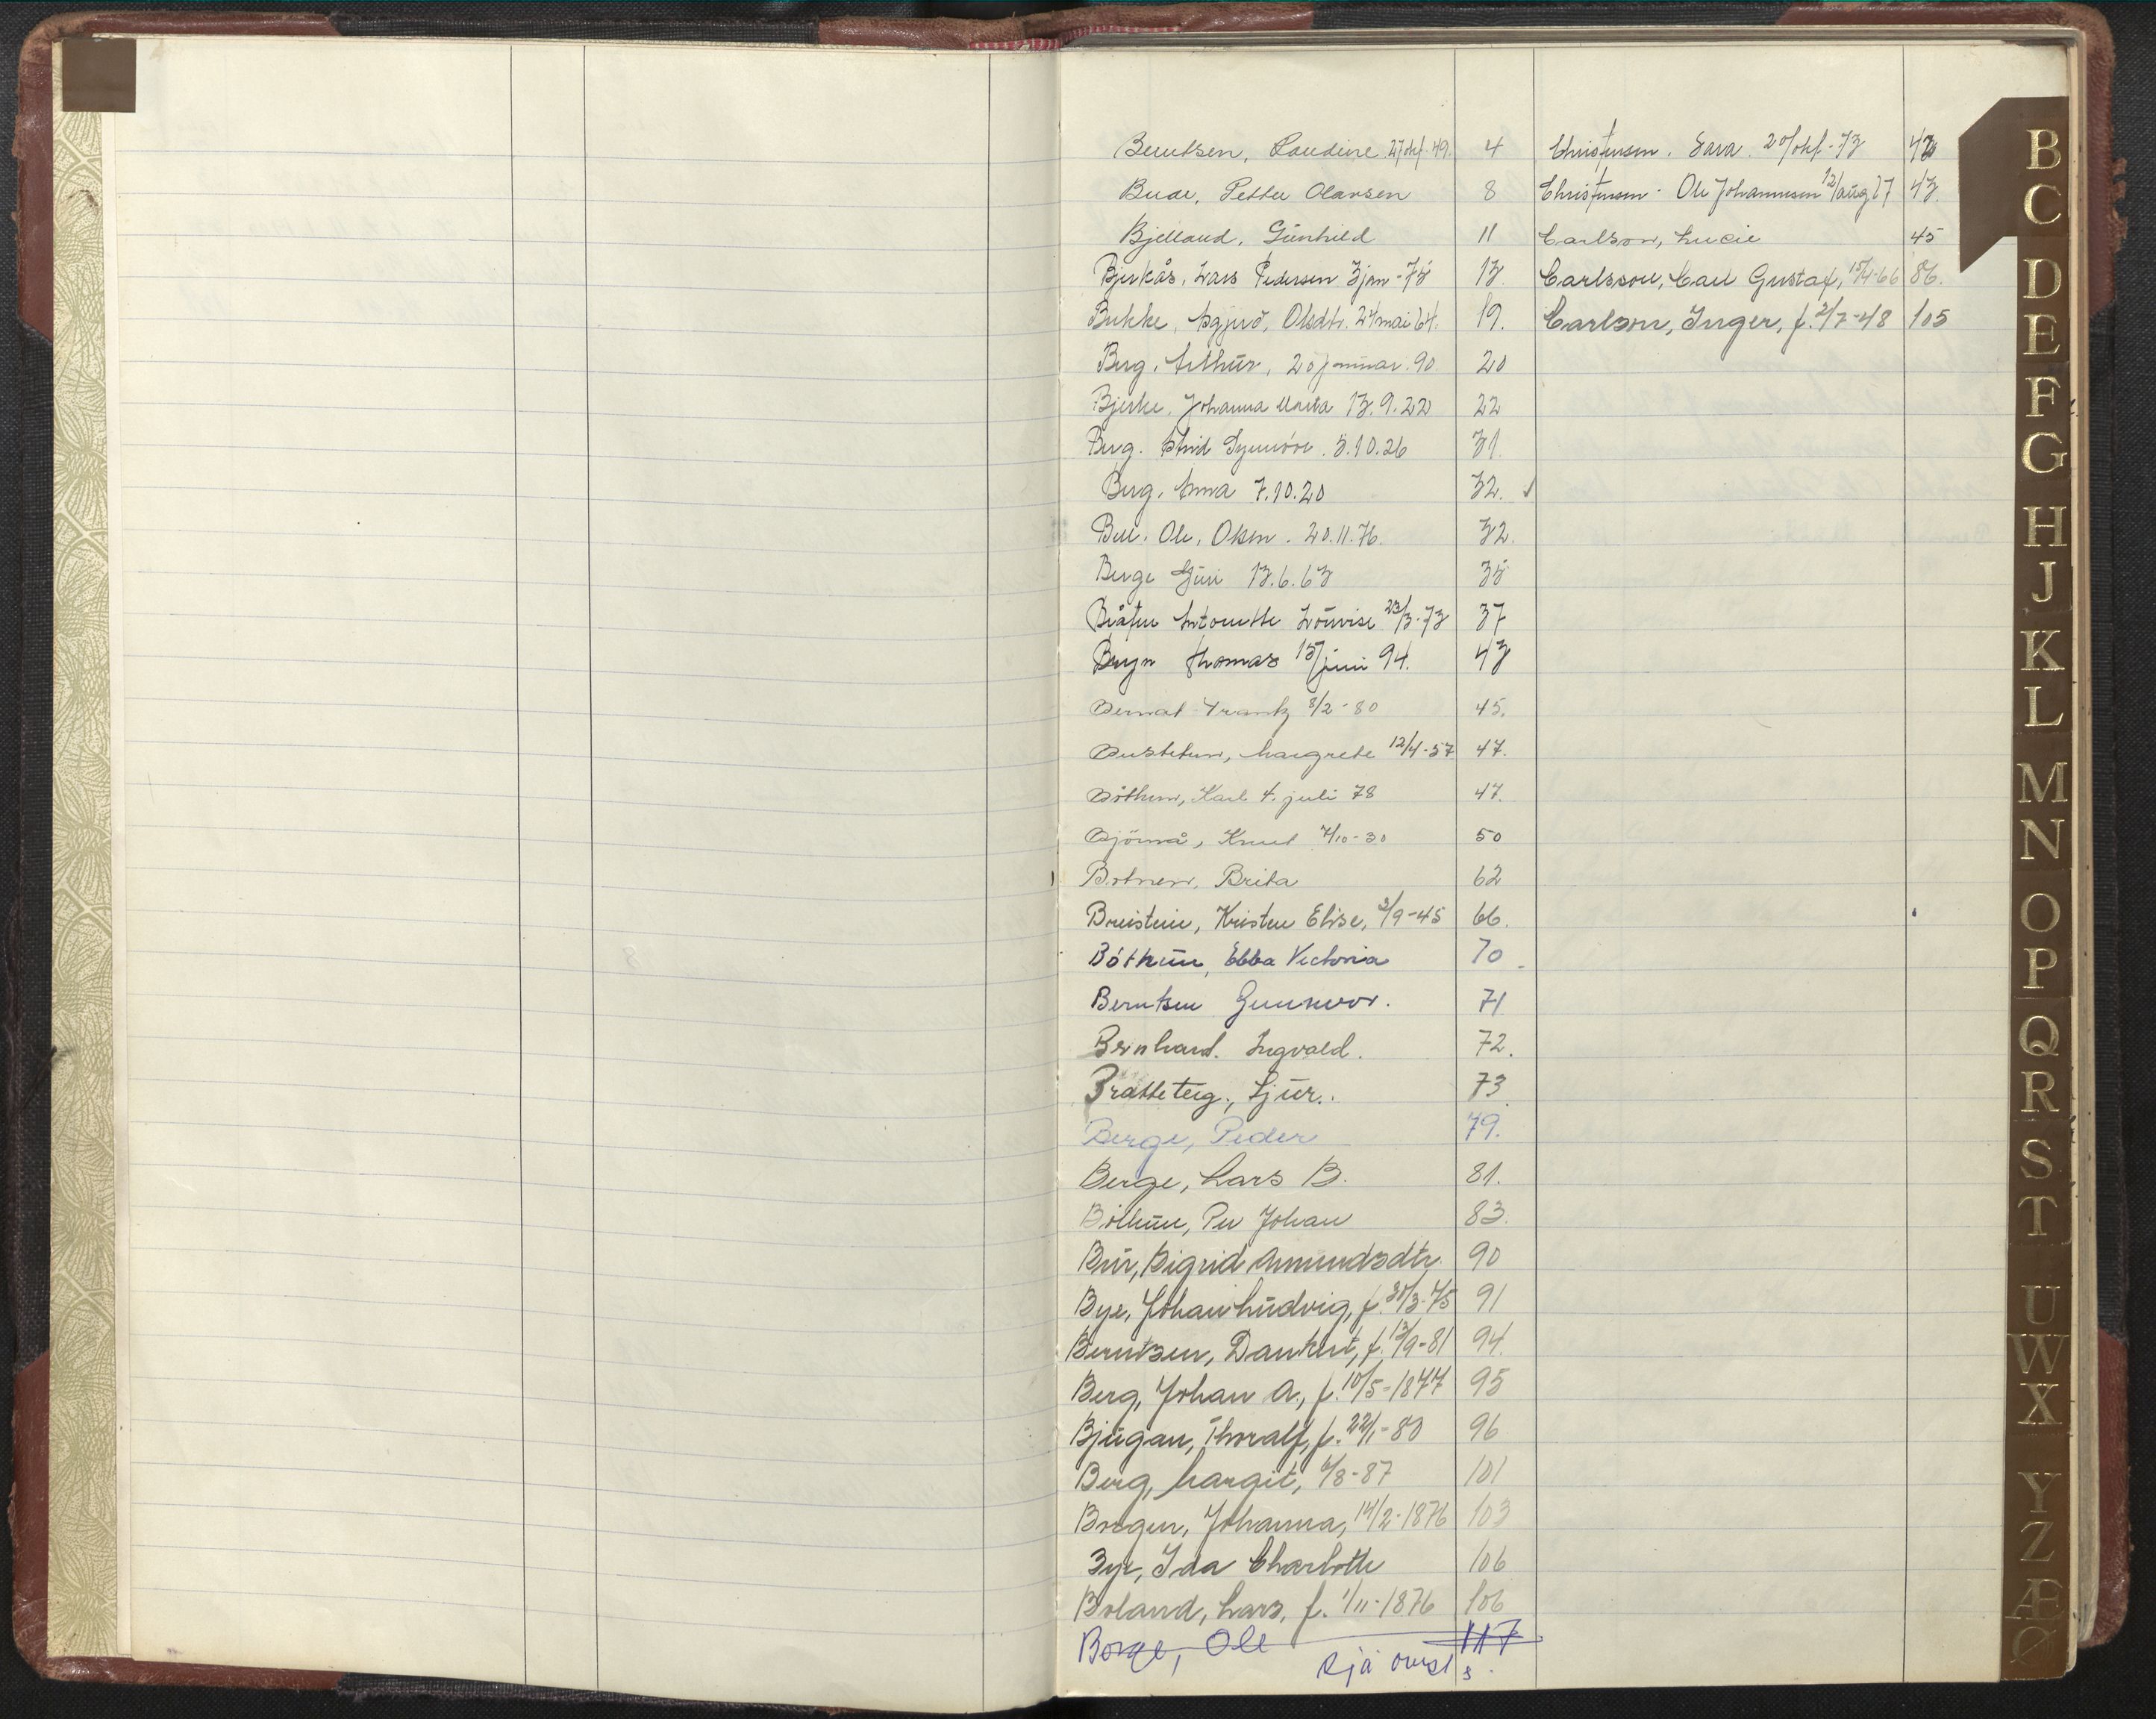 Berntsen, Laudine 27/okt. 49. 4
Buar, Petter Olavsen 8
Bjelland, Gunhild 11
Bjerkås, Lars Pedersen 3 jan - 75 13.
Bukke, Olsdtr. 24 mai 64. 19.
Berg, Arthur, 20 januar. 90 20
Bjerke, Johanna Marta 13.9.22 22
Berg. Astrid Synnöve. 5.10.26 31.
Berg, Anna 7.10.20 32.
Bell. Ole, Olsen. 20.11.76. 32.
Berge Guri 13.6.63 35
Bråten Antonette Lovise 23/3-73 37
Bryn Thomas 15/juni 94. 43
Bernat Frantz 8/2-80 45.
Margrete 12/4-57 47.
Böthun, Karl 4. juli 78 47.
Björnå, Knut 7/10-30 50
Botnen, Brita 62
Breistein, Kristen Elise, 3/9-45 66.
Böthun, Ebba Victoria 70
Berntsen Gunnvor. 71
Bernhard. Ingvald. 72.
Bratteteig., Sjur.. 73.
Berge, Peder 79.
Berge, Lars B. 81.
Böthun, Per Johan 83.
Bur, Sigrid Amundsdtr. 90
Bye, Johan Ludvig, f. 31/3-75 91
Berntsen, Dankert, f. 13/9-81 94.
Berg, Johan A., f. 10/5-1877 95
Bjugan, Thoralf, f. 22/1-80 96
Berg, Margit, 4/8-87 101
Brogen, Johanna, 14/2-1876 103
Bye, Ida Charlotte 106
Boland, Lars, f. 1/11-1876 106
Borge, Ole 117
sjå
Christensen. Sara. 20/okt.-73 43
Christensen. Ole Johannesen 12/aug 27 43.
Carlson, Lucie 45
Carlsson, Carl Gustaf, 15/4-66 86.
Carlson, Inger, f. 2/7-48 105
B
C
D
E
F
G
H
J
K
L
M
N
O
P
Q
R
S
T
U
W
X
Y
Z
Æ
Ø